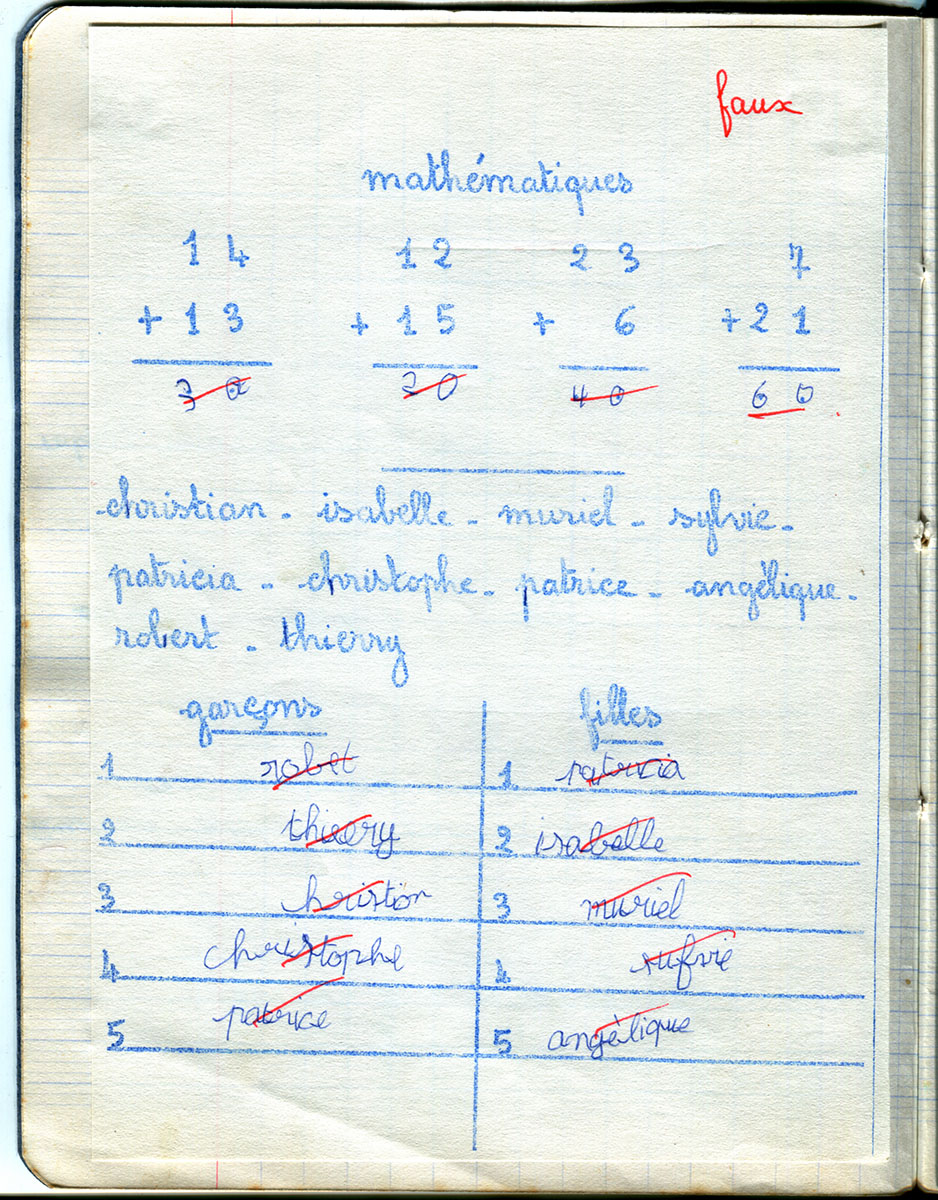 faux
mathématiques
14 12 23 7
+ 13 + 15 + 6 + 21
30 30 40 60
christian - isabelle - muriel - sylvie -
patricia - christophe - patrice - angélique -
robert - thierry
garçons filles
1 robet 1 patricia
2 thierry 2 isabelle
3 hristion 3 muriel
4 christophe 4 sufvie
5 patrice 5 angèlique